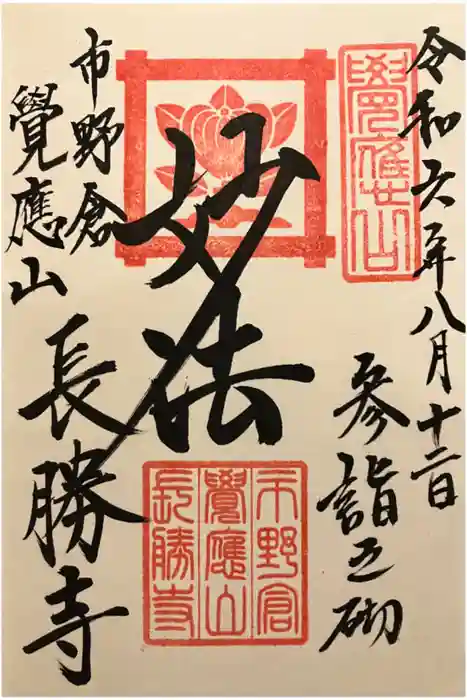 令和六年八月十二日
参詣之砌
覺應山
妙法
市野倉
覺應山
長勝寺
市野倉
覺應山
長勝寺